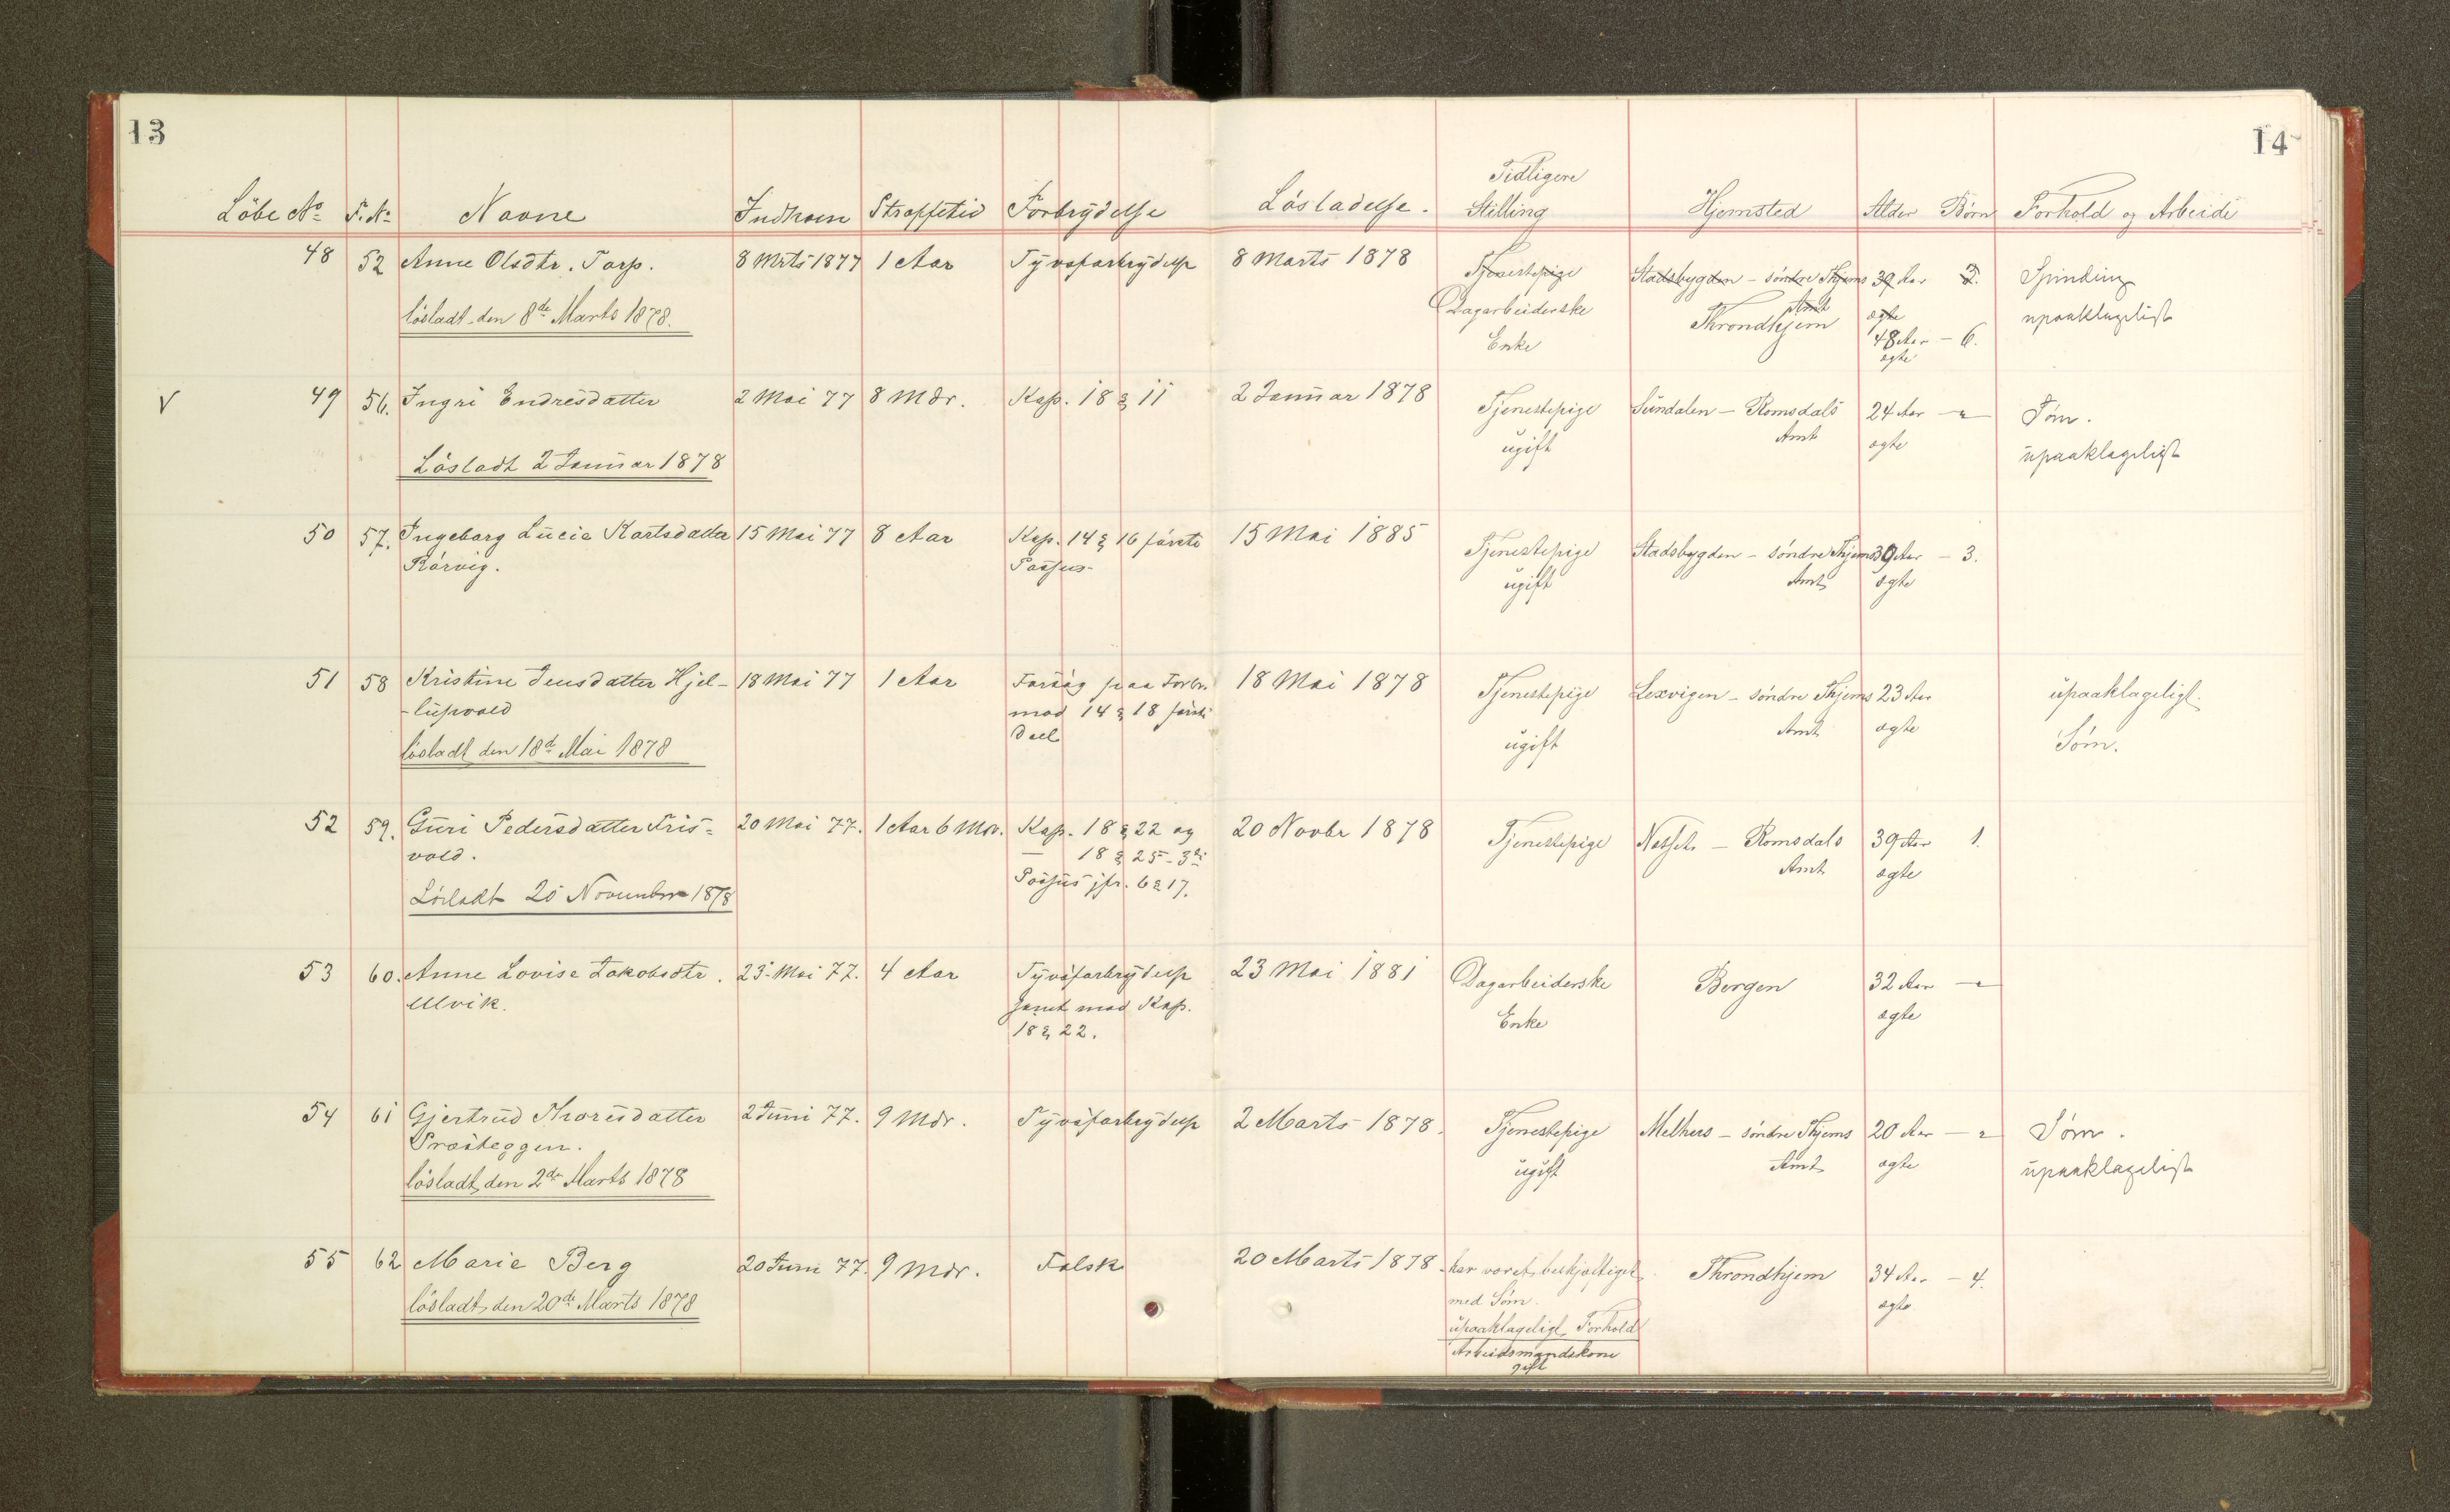 13
14
Löbe No F. No Navne Indkom Straffetid Forbrydelse Lösladelse. Tidligere Stilling Hjemsted Alder Börn Forhold og Arbeide
48 52 Anne Olsdtr. Tarp. 8 Mrts 1877 1 Aar Tyvsforbrydelse 8 Marts 1878 Tjenestepige Stadsbygden - söndre Thjems 39 Aar 3. Spinding
Amt ægte
lösladt den 8de Marts 1878. Dagarbeiderske Throndhjem 48 Aar - 6. upaaklageligt
Enke ægte
V 49 56. Ingri Endresdatter 2 Mai 77 8 Mdr. Kap. 18 § 11 2 Januar 1878 Tjenestepige Sundalen - Romsdals 24 Aar - " Söm.
ugift Amt ægte upaaklageligt
Lösladt 2 Januar 1878
50 57. Ingeborg Lucie Karlsdatter 15 Mai 77 8 Aar Kap. 14 § 16 förste 15 Mai 1885 Tjenestepige Stadsbygden - söndre Thjems 39 Aar - 3.
Rörvig. Passus ugift Amt ægte
51 58 Kristine Jensdatter Hjel- 18 Mai 77 1 Aar Forsög paa Forbr. 18 Mai 1878 Tjenestepige Lexvigen - söndre Thjems 23 Aar upaaklageligt
-lupvald mod 14 § 18 förste ugift Amt ægte Söm.
Deel
lösladt den 18de Mai 1878
52 59. Guri Pedersdatter Fris- 20 Mai 77. 1 Aar 6 Mdr. Kap. 18 § 22 og 20 Novbr 1878 Tjenestepige Nesset - Romsdals 39 Aar 1.
vold. — 18 § 25 - 3die Amt ægte
Passus jfr. 6 § 17.
Lösladt 20 November 1878
53 60. Anne Lovise Jakobsdtr. 23 Mai 77. 4 Aar Tyvsforbrydelse 23 Mai 1881 Dagarbeiderske Bergen 32 Aar - "
Ulvik. samt mod Kap. Enke ægte
18 § 22.
54 61 Gjertrud Thoresdatter 2 Juni 77. 9 Mdr. Tyvsforbrydelse 2 Marts 1878. Tjenestepige Melhus - söndre Thjems 20 Aar - " Söm.
Præsteggen. ugift Amt ægte upaaklageligt
lösladt den 2de Marts 1878
55 62 Marie Berg 20 Juni 77. 9 Mdr. Falsk 20 Marts 1878 har været beskjæftiget Throndhjem 34 Aar - 4.
med Söm. ægte
lösladt den 20de Marts 1878 upaaklageligt Forhold
Arbeidsmandskone
gift